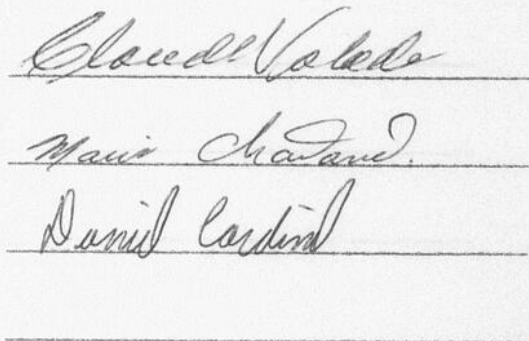 Claude Valade
Marie Charland.
Daniel Cardinal